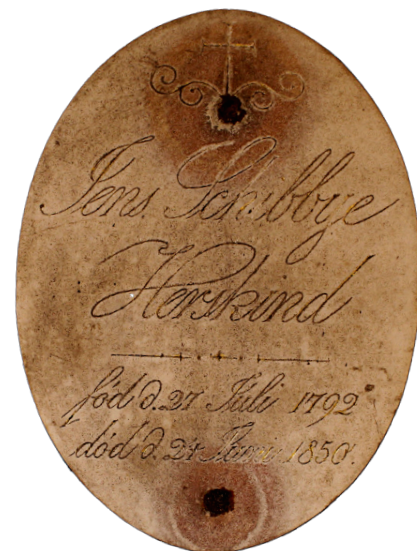 Jens Schibbye
Herskind
född d. 27 Juli 1792
död d. 24 1850.